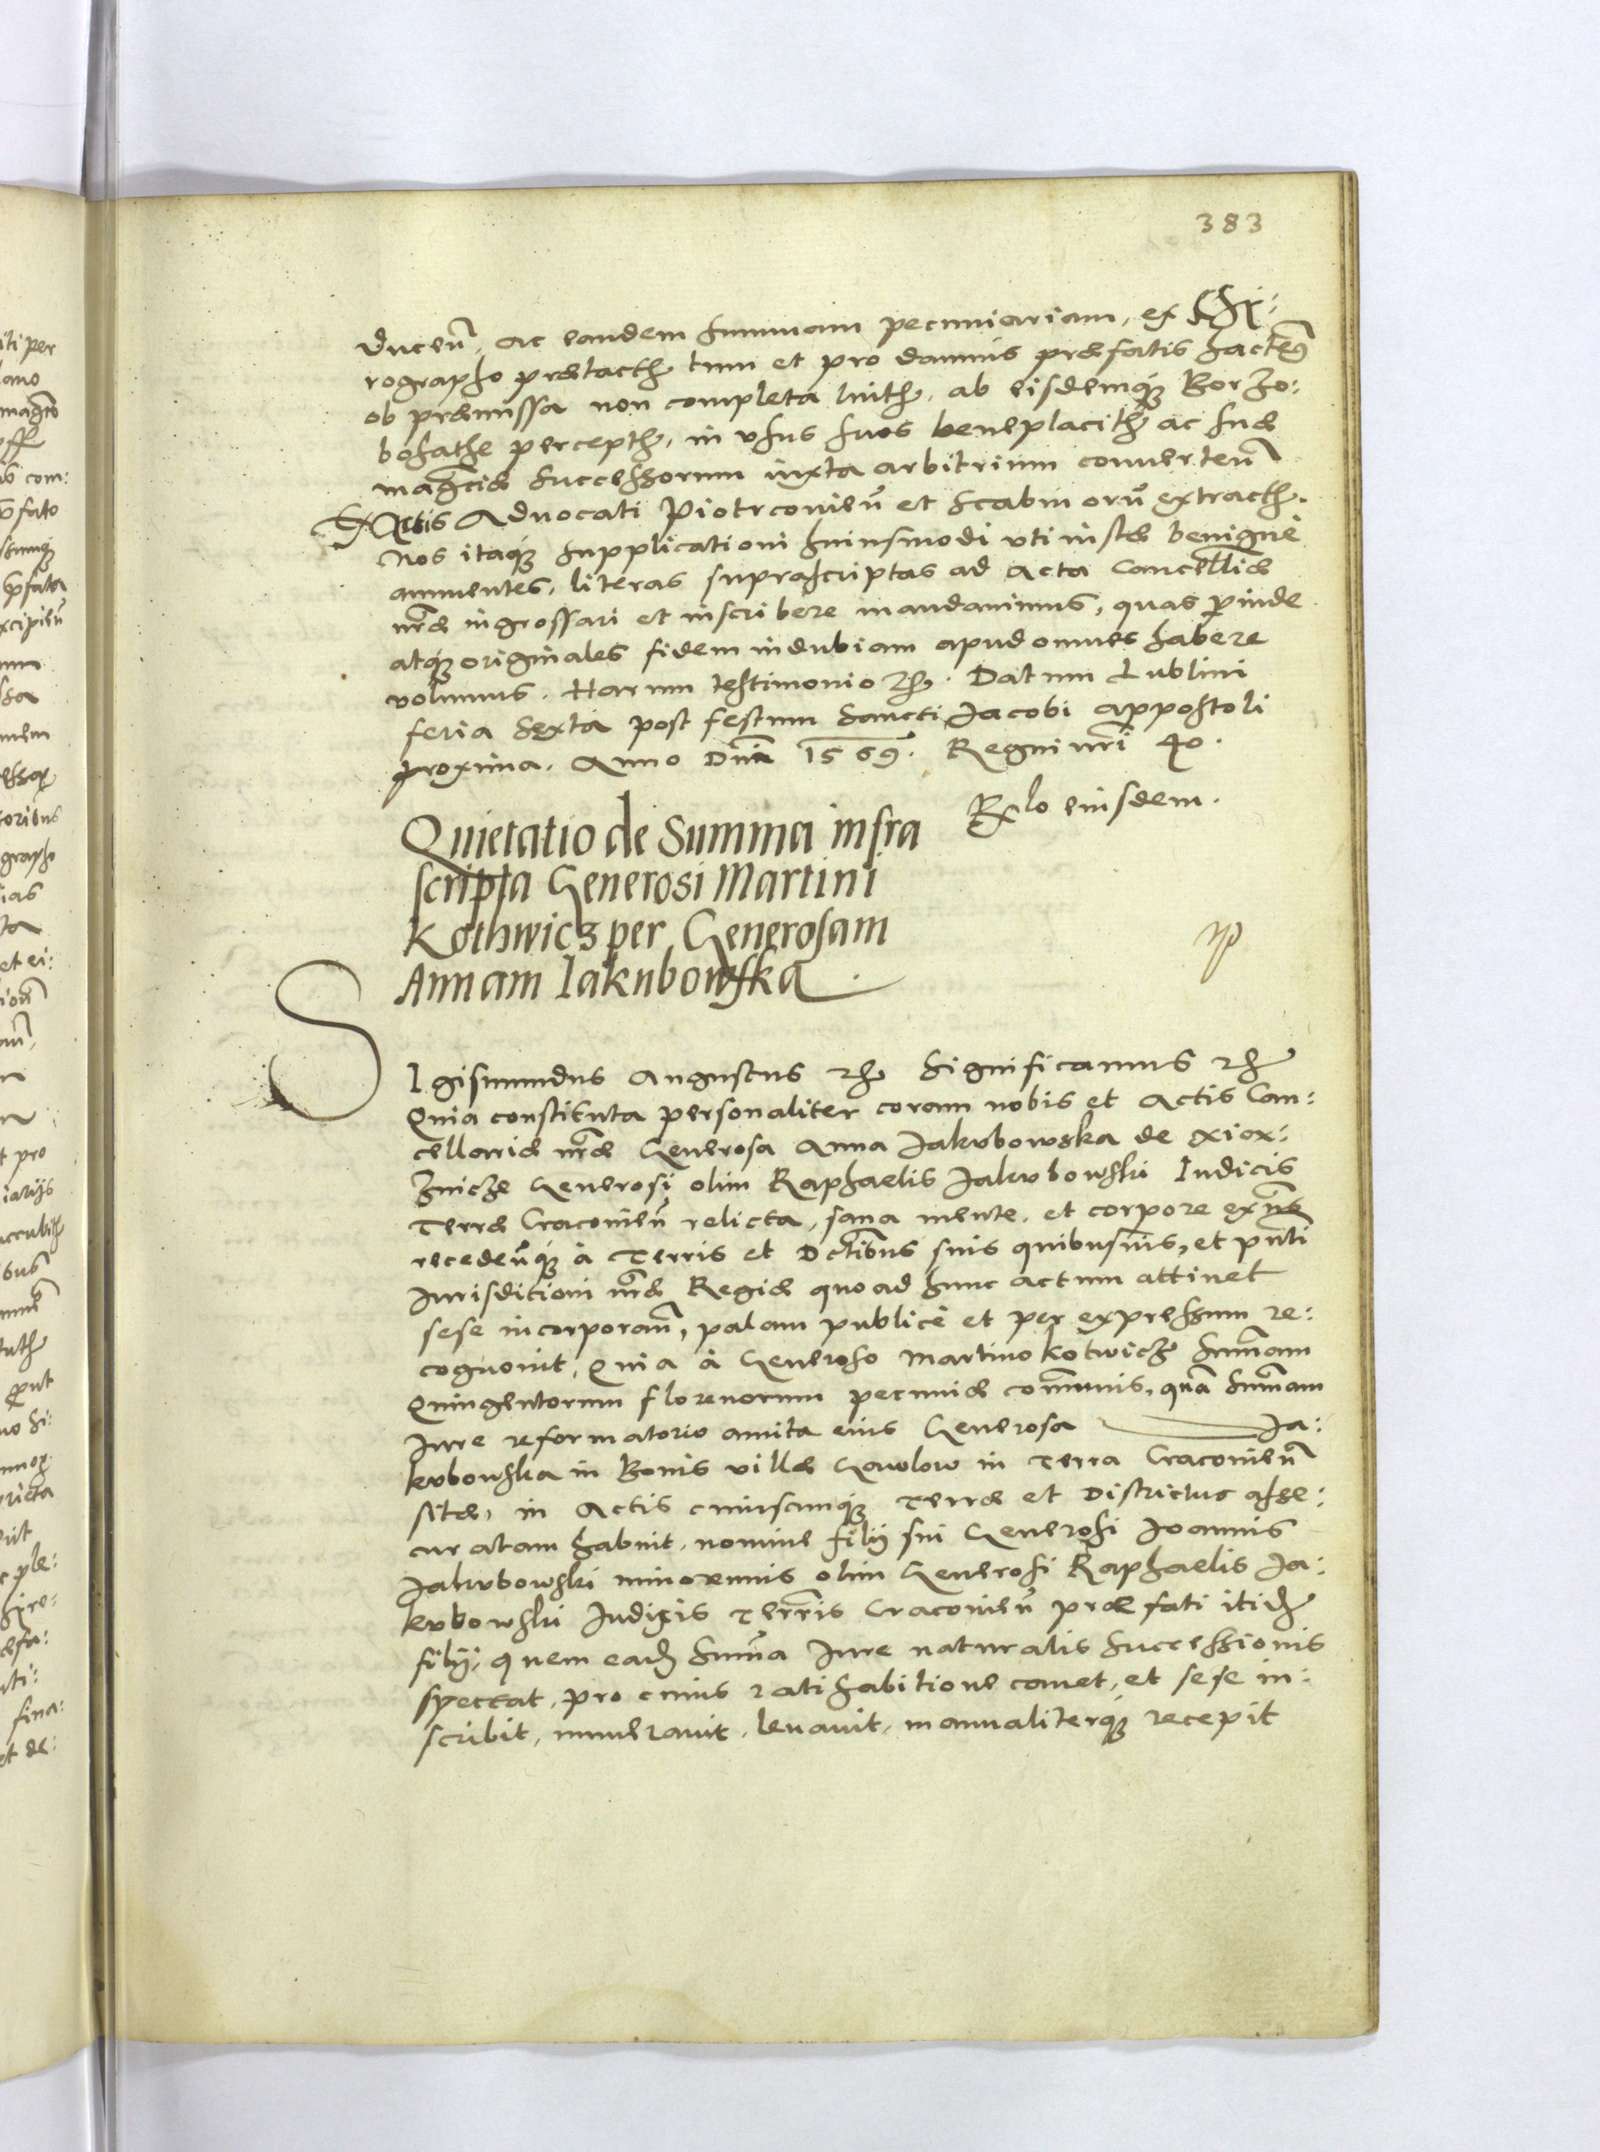 383
ducen̄, ac eandem summam pecuniariam, ex Chi:
rographo prætacth tum et pro damnis præfatis factis
ob præmissa non completa luith, ab eisdemq́ Borzo:
bohathe percepth, in usus suos beneplacith ac suæ
mag̅ciæ successorum iuxta arbitrium conuerten̄
Ex Actis Aduocati Piotrcouien̄ et Scabinorū extracth.
Nos itaq́ supplicationi huiusmodi uti iustæ benignè
annuentes, literas suprascriptas ad Acta Cancell̅iæ
nr̅æ ingrossari et inscribere mandauimus, quas perinde
atq́ originales fidem indubiam apud omnes habere
volumus. Harum testimonio etc. Datum Lublini
feria Sexta post festum Sancti Jacobi appostoli
proxima. Anno Dn̄i 1569. Regni nr̄i 40.
Rlo eiusdem.
Quietatio de Summa infra
scripta Generosi Martini
Kothwicz per Generosam
Annam Iakubowska.
SIgismundus Augustus etc. Significamus etc.
Quia constituta personaliter coram nobis et Actis Can:
cellariæ nr̅æ Generosa Anna Jakubowska de Xiox:
znicze Generosi olim Raphaelis Jakubowski Iudicis
Terræ Cracouien̄ relicta, sana mente, et corpore exn̄s
receden̄q́ à Terris et Dctībus suis quibusuis, et pn̄ti
Iurisditioni nr̅æ Regiæ quoad hunc actum attinet
sese incorporan̄, palam publicè et per expressum re:
cognouit, Quia à Generoso Martino Kotwicz sum̄am
Quingentorum florenorum pecuniæ com̄unis, quā sum̄am
Iure reformatorio amita eius Generosa Ja:
kubowska in Bonis villæ Gawlow in Terra Cracouien̄
sitæ, in Actis cuiuscunq́ Terræ et Districtus asse:
curatam habuit, nomine filij sui Generosi Joannis
Jakubowski minorennis olim Generosi Raphaelis Ja:
kubowski Iudicis Terr̄is Cracouien̄ præfati itidē
filij, quem eadē sum̄a Iure naturalis successionis
spectat, pro cuius ratihabitione cauet, et sese in:
scribit, numerauit, leuauit, manualiterq́ recepit